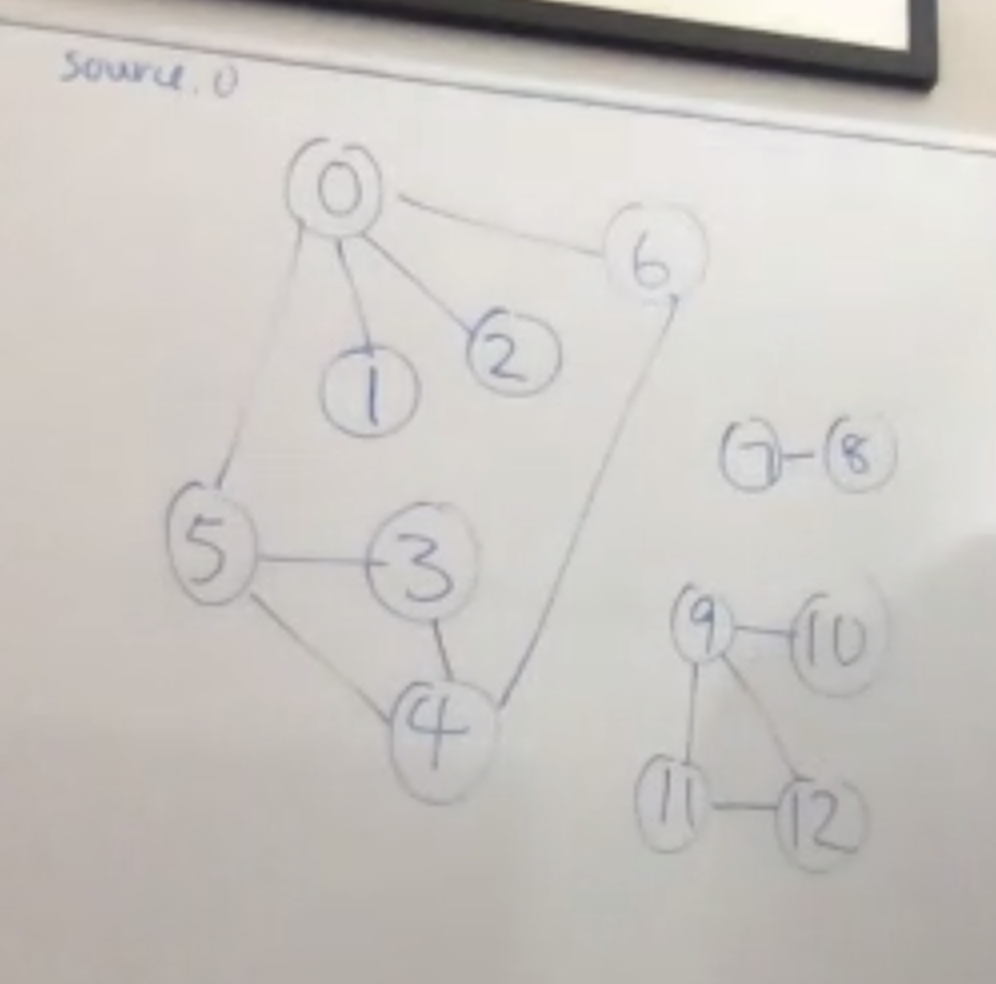 source. 0
0
6
2
1
7 8
5 3
9 10
4
11 12